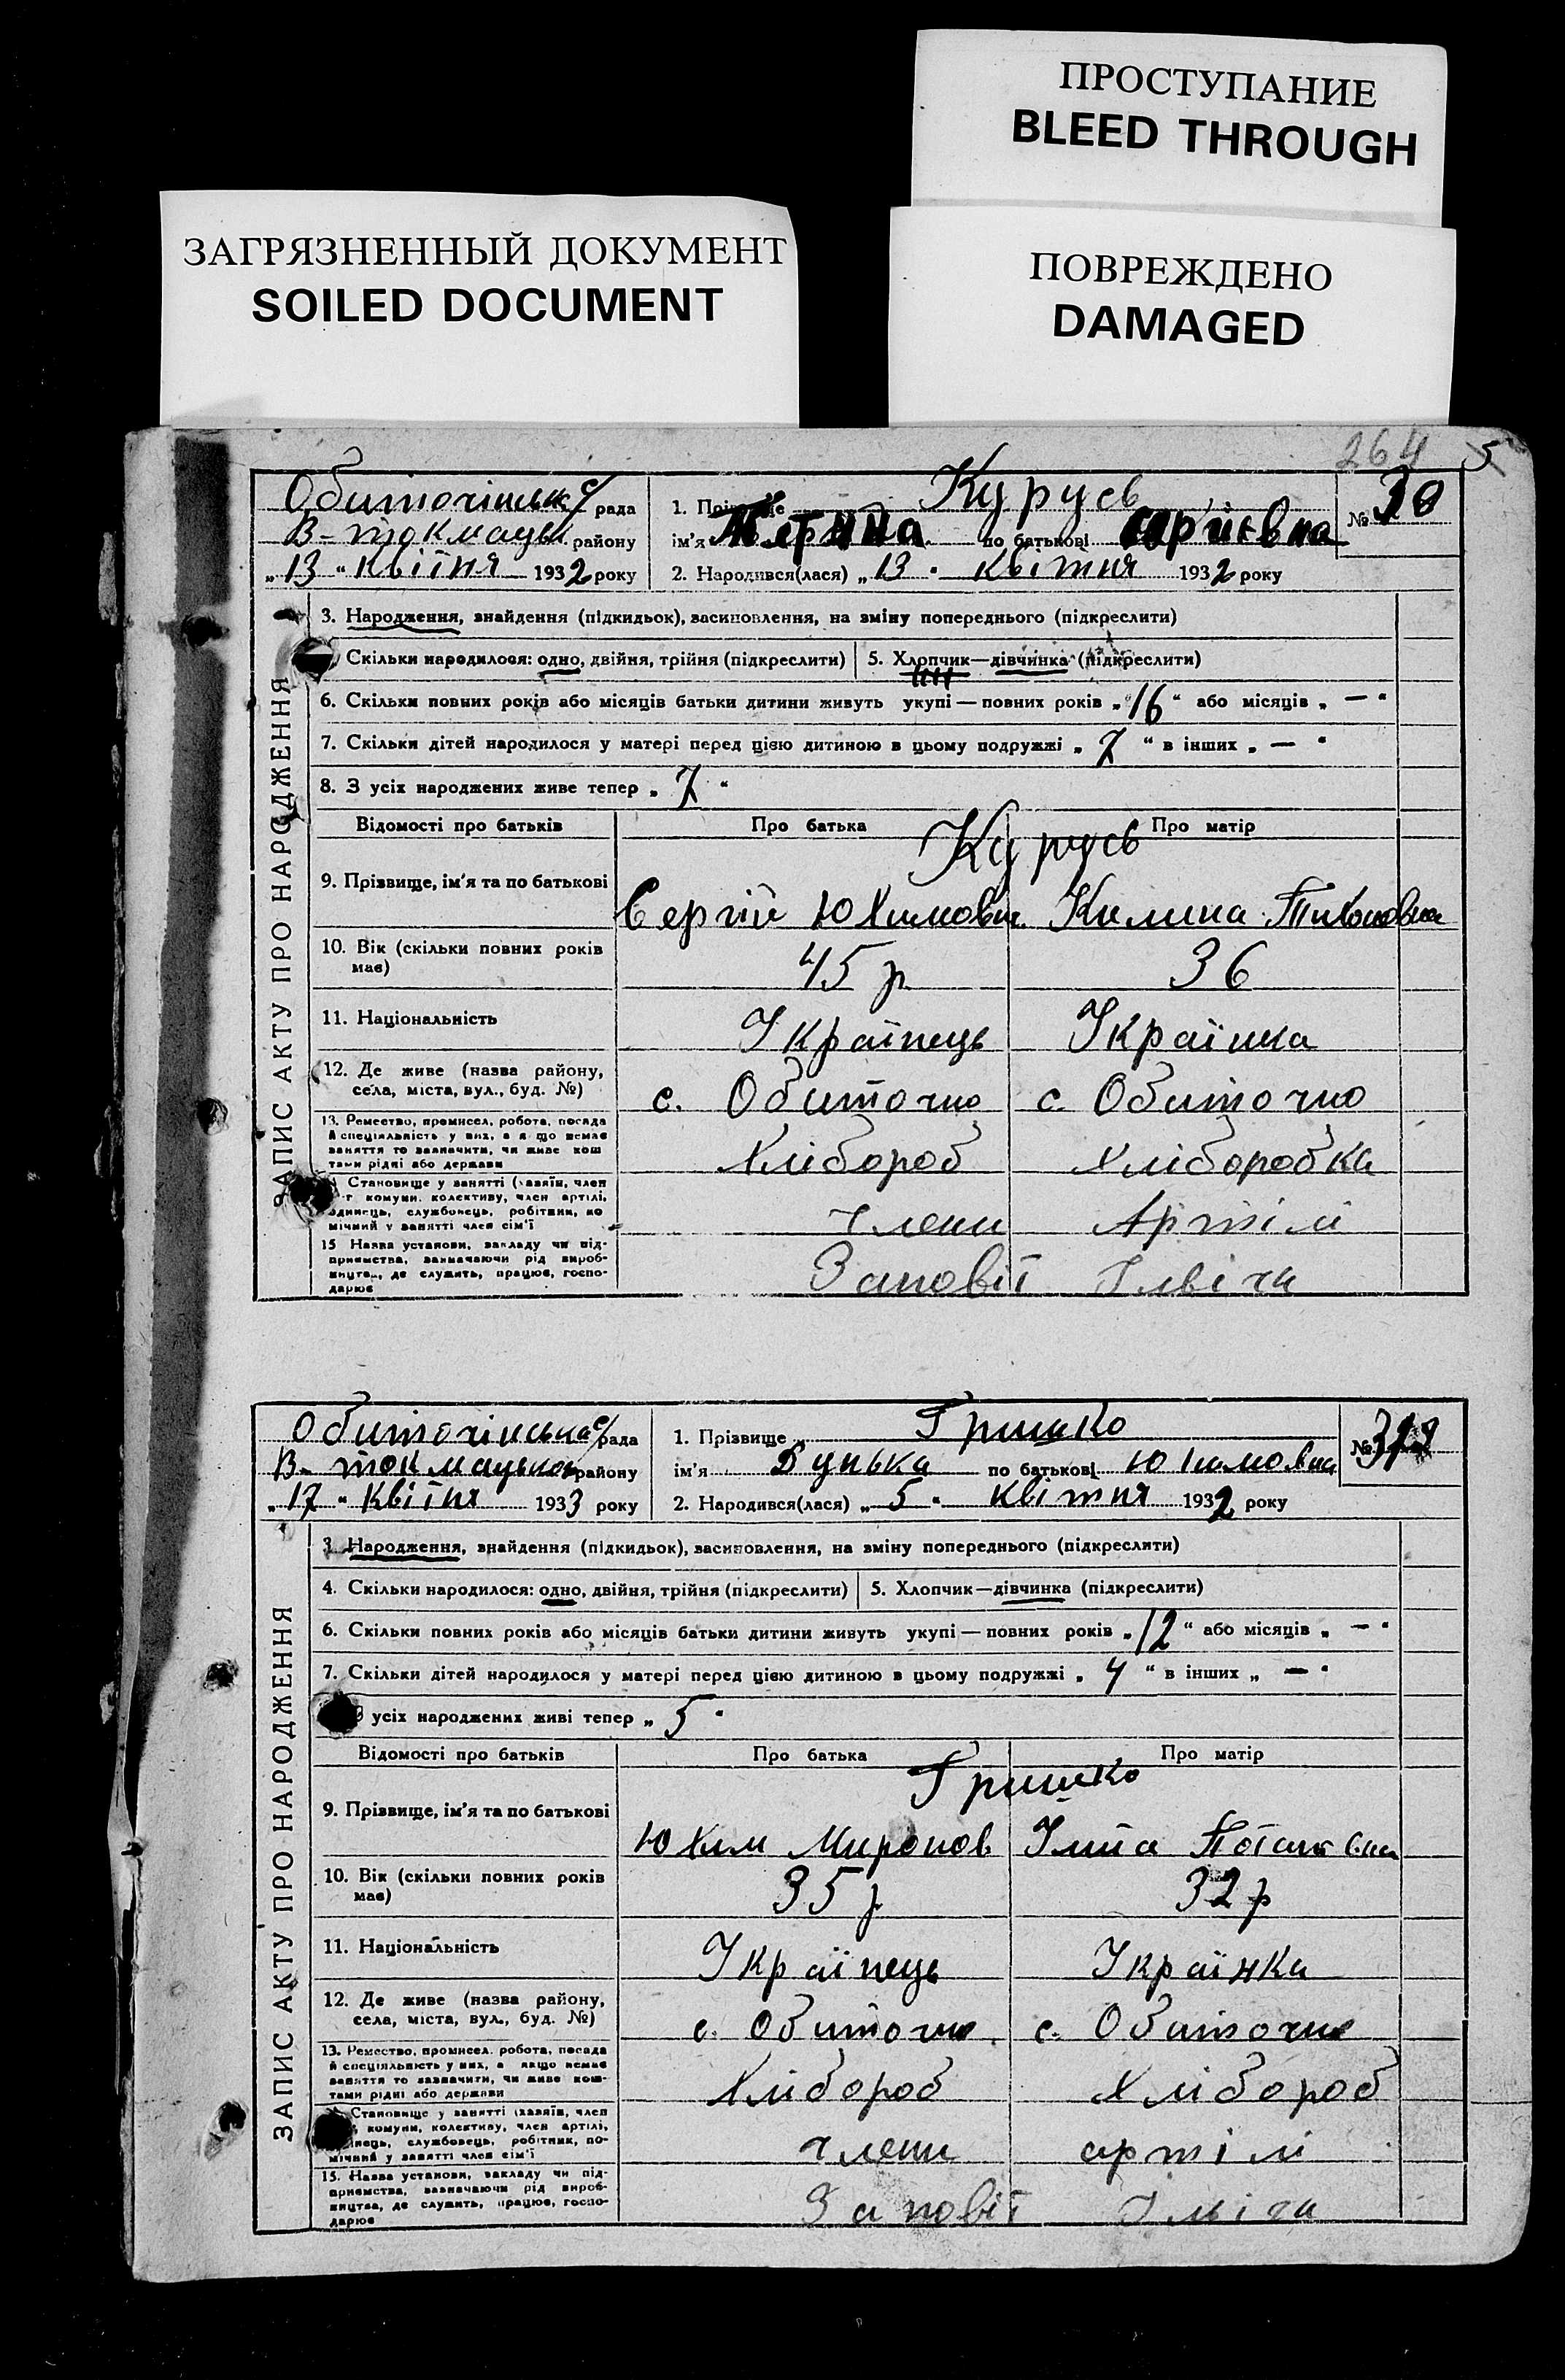 ПРОСТУПАНИЕ
BLEED THROUGH
ЗАГРЯЗНЕННЫЙ ДОКУМЕНТ
SOILED DOCUMENT
ПОВРЕЖДЕНО
DAMAGED
264 5
ЗАПИС АКТУ ПРО НАРОДЖЕННЯ
с/рада
В-токмацьк району
„13“ квітня 1932 року
1. Прізвище Курусь
ім'я по батькові Сергієвна
№ 30
2. Народився(лася) „13“ квітня 1932 року
3. Народження, знайдення (підкидьок), засиновлення, на зміну попереднього (підкреслити)
Скільки народилося: одно, двійня, трійня (підкреслити) 5. Хлопчик—дівчинка (підкреслити)
6. Скільки повних років або місяців батьки дитини живуть укупі — повних років „16“ або місяців „—“
7. Скільки дітей народилося у матері перед цією дитиною в цьому подружжі „7“ в інших „—“
8. З усіх народжених живе тепер „7“
Відомості про батьків Про батька Про матір
Курусь
9. Прізвище, ім'я та по батькові Сергій Юхимович Килина Тихоновна
10. Вік (скільки повних років має) 45 р 36
11. Національність Українець Українка
12. Де живе (назва району, села, міста, вул., буд. №) с. Обиточно с. Обиточно
13. Ремество, промисел, робота, посада й спеціяльність у них, а якщо немає заняття то зазначити, чи живе коштами рідні або держави Хлібороб Хліборобка
Становище у занятті (хазяїн, член комуни, колективу, член артілі, одинець, службовець, робітник, помічний у занятті член сім'ї члени Артілі
15 Назва установи, закладу чи підприємства, зазначаючи рід виробництва, де служить, працює, господарює Заповіт Ілліча
ЗАПИС АКТУ ПРО НАРОДЖЕННЯ
Обиточінська с/рада
В-токмацького району
„17“ квітня 1933 року
1. Прізвище Гришко
ім'я Дунька по батькові Юхимовна
№
2. Народився(лася) „5“ квітня 1932 року
3. Народження, знайдення (підкидьок), засиновлення, на зміну попереднього (підкреслити)
4. Скільки народилося: одно, двійня, трійня (підкреслити) 5. Хлопчик—дівчинка (підкреслити)
6. Скільки повних років або місяців батьки дитини живуть укупі — повних років „12“ або місяців „—“
7. Скільки дітей народилося у матері перед цією дитиною в цьому подружжі „4“ в інших „—“
З усіх народжених живі тепер „5“
Відомості про батьків Про батька Про матір
Гришко
9. Прізвище, ім'я та по батькові Юхим Миронов
10. Вік (скільки повних років має) 35 р 32 р
11. Національність Українець Українка
12. Де живе (назва району, села, міста, вул., буд. №) с. Обиточне с. Обиточне
13. Ремество, промисел, робота, посада й спеціяльність у них, а якщо немає заняття то зазначити, чи живе коштами рідні або держави Хлібороб Хлібороб
Становище у занятті (хазяїн, член комуни, колективу, член артілі, одинець, службовець, робітник, помічний у занятті член сім'ї члени артілі
15. Назва установи, закладу чи підприємства, зазначаючи рід виробництва, де служить, працює, господарює Заповіт Ілліча